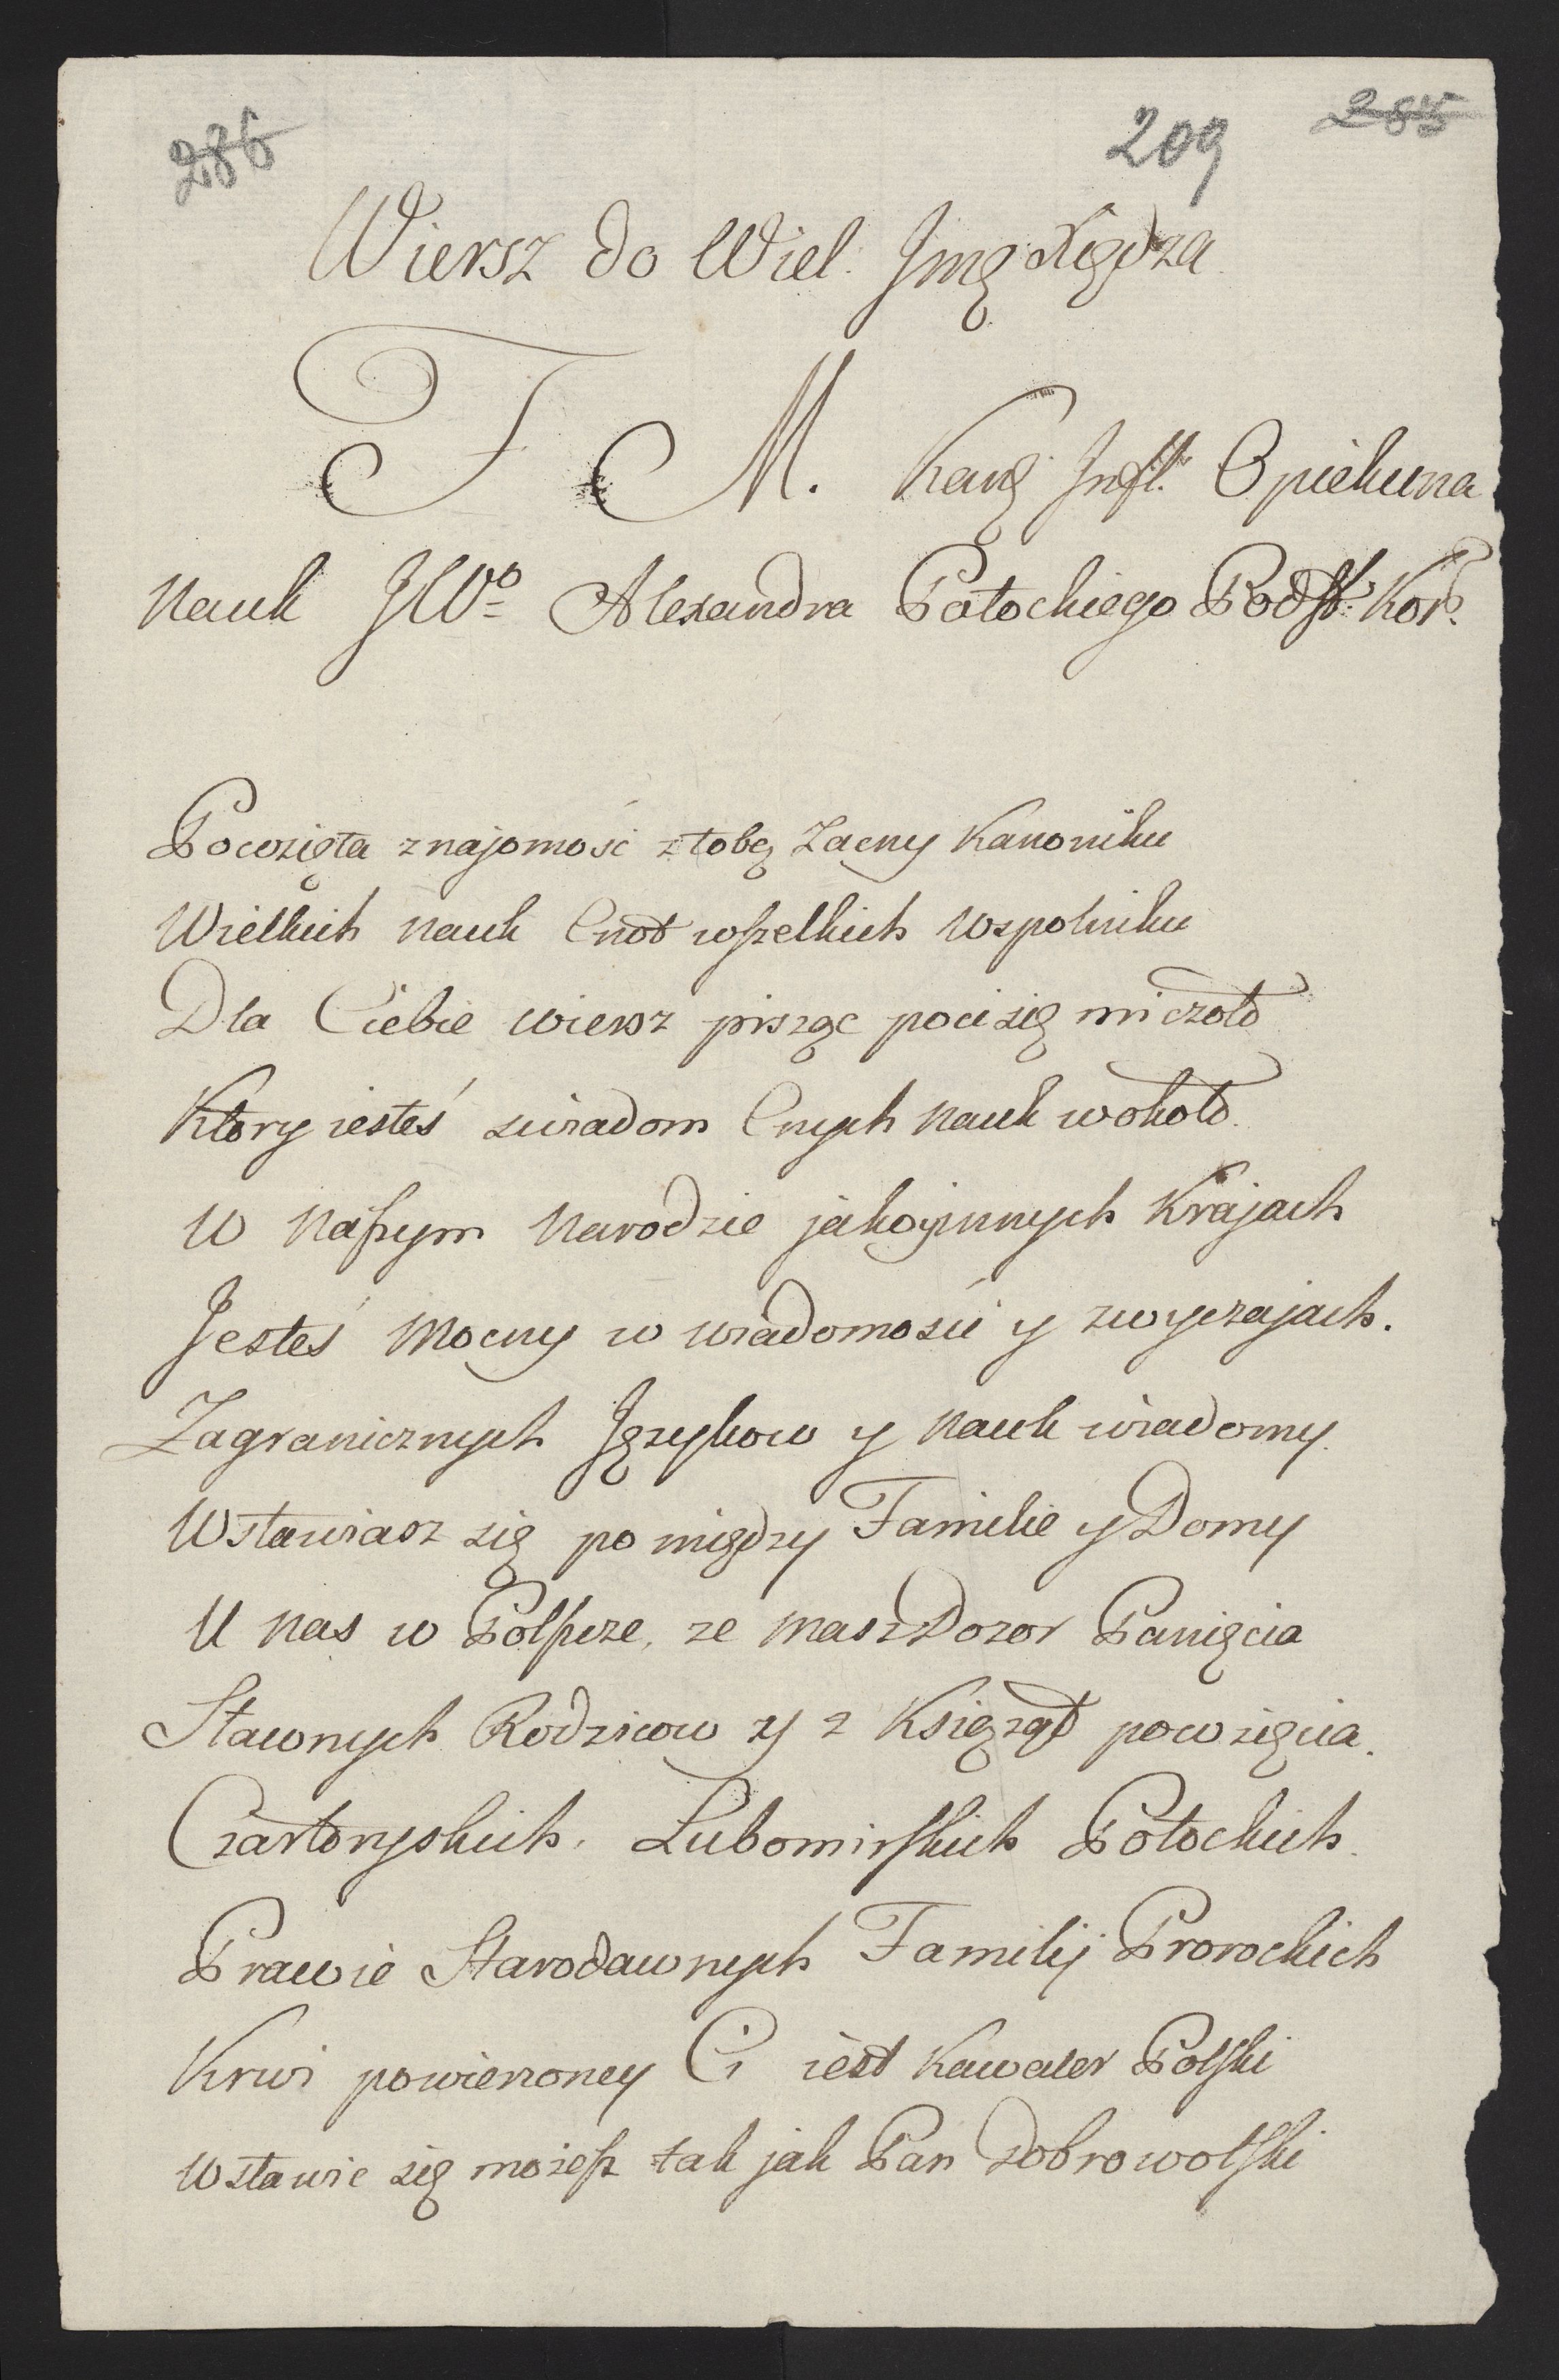 286
209 285
Wiersz do Wiel. Jmę Xiędza
F M. Kanę Infl. Opiekuna
Nauk JWo Alexandra Potockiego Podst. Kor.
Powzięta znajomość z tobą Zacny Kanoniku
Wielkich nauk Cnot wszelkich Wspolniku
Dla Ciebie wiersz pisząc poci się mi czoło
Ktory iesteś swiadom Cnych Nauk wokoło.
W Naszym Narodzie jako yinnych Krajach
Jesteś Mocny w wiadomości y zwyczajach.
Zagranicznych Językow y Nauk wiadomy.
Wsławiasz się po między Familie y Domy
U Nas w Polszcze, ze masz Dozor Panięcia
Sławnych Rodzicow y z Książąt powzięcia.
Czartoryskich. Lubomirskich Potockich.
Prawie Starodawnych Familij Prorockich
Krwi powierzoney Ci iest Kawaler Polski
Wsławic się możesz tak jak Pan Dobrowolski